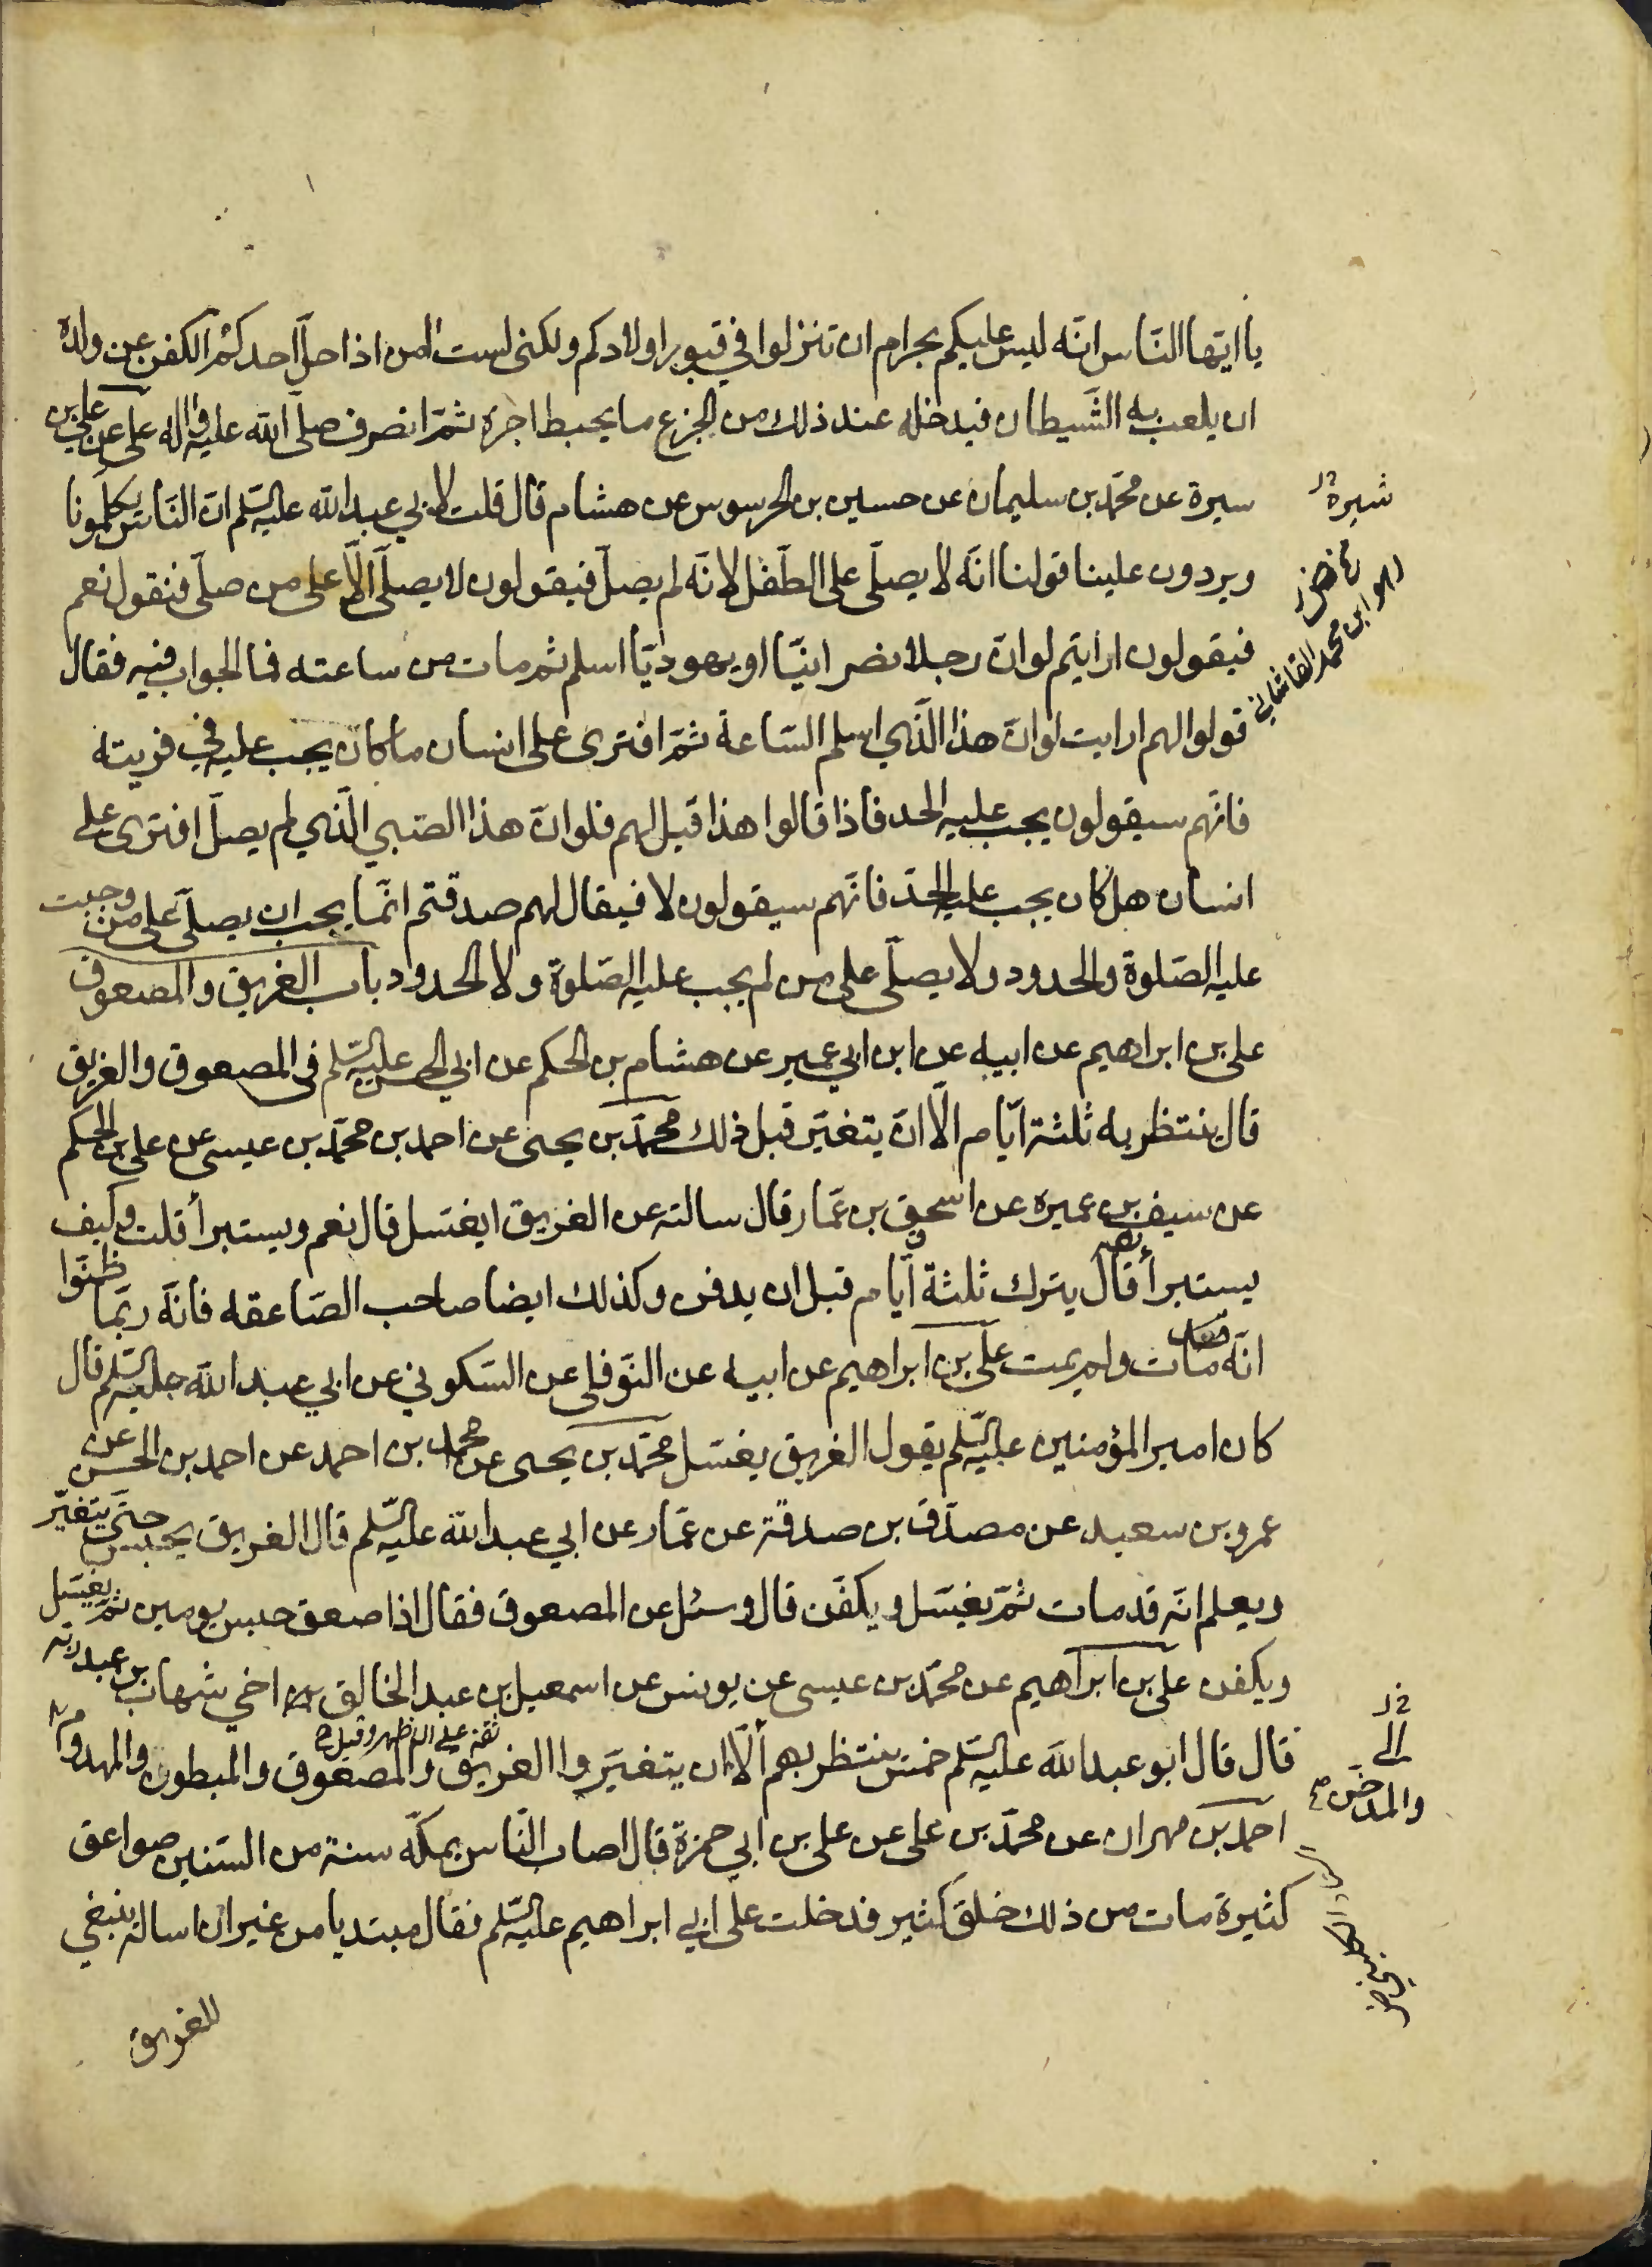 يا ايّها النّاس انّه ليس عليكم بحرام ان تنزلوا في قبور اولادكم ولكني لست آمن اذا حلّ احدكم الكفن عن ولده
ان يلعب به الشّيطان فيدخله عند ذلك من الجزع ما يحبط اجره ثمّ انصرف صلّى الله عليه وآله على عن علي بن
سيرة عن محمّد بن سليمان عن حسين بن الحرسوس عن هشام قال قلت لابي عبدالله عليه السّلم انّ النّاس يكلّمونا
ويردون علينا قولنا انّه لا يصلّى على الطّفل لانّه لم يصلّ فيقولون لا يصلّى الّا على من صلّى فنقول نعم
فيقولون ارايتم لو انّ رجلا نصرانيّا او يهوديّا اسلم ثم مات من ساعته فما الجواب فيه فقال
قولوا لهم ارايت لو انّ هذا الّذي اسلم السّاعة ثمّ افترى على انسان ما كان يجب عليه في فريته
فانّهم سيقولون يجب عليه الحد فاذا قالوا هذا قيل لهم فلو انّ هذا الصّبي الّذي لم يصلّ افترى على
انسان هل كان يجب عليه الحدّ فانّهم سيقولون لا فيقال لهم صدقتم انّما يجب ان يصلّى على من وجبت
عليه الصّلوة والحدود ولا يصلّى على من لم يجب عليه الصّلوة ولا الحدود باب الغريق والمصعوق
علي بن ابراهيم عن ابيه عن ابن ابي عمير عن هشام بن الحكم عن ابي الحسن عليه السّلم في المصعوق والغريق
قال ينتظر به ثلثة ايّام الّا ان يتغيّر قبل ذلك محمّد بن يحيى عن احمد بن محمّد بن عيسى عن علي بن الحكم
عن سيف بن عميره عن اسحق بن عمّار قال سالته عن الغريق ايغسّل قال نعم ويستبرأ قلت وكيف
يستبرأ قال يترك ثلثة ايّام قبل ان يدفن وكذلك ايضا صاحب الصّاعقه فانّه ربّما ظنّوا
انّه مات ولم يمت علي بن ابراهيم عن ابيه عن النّوفلي عن السّكوني عن ابي عبدالله عليه السّلم قال
كان امير المؤمنين عليه السّلم يقول الغريق يغسّل محمّد بن يحيى عن محمد بن احمد عن احمد بن الحسن عن
عمرو بن سعيد عن مصدّق بن صدقة عن عمّار عن ابي عبدالله عليه السّلم قال الغريق يحبس حتّى يتغيّر
ويعلم انّه قد مات ثمّ يغسّل ويكفّن قال وسئل عن المصعوق فقال اذا صعق حبس يومين ثمّ يغسّل
ويكفن علي بن ابراهيم عن محمّد بن عيسى عن يونس عن اسمعيل بن عبد الخالق بن اخي شهاب بن عبد ربّه
قال قال ابو عبدالله عليه السّلم خمس ينتظر بهم الّا ان يتغيّروا الغريق والمصعوق والمبطون والمهدوم
احمد بن مهران عن محمّد بن علي عن علي بن ابي حمزة قال اصاب النّاس بمكّة سنة من السّنين صواعق
كثيرة مات من ذلك خلق كثير فدخلت على ابي ابراهيم عليه السّلم فقال مبتديا من غير ان اساله ينبغي
للغريق
شبرة
هو ابن محمد القاشاني
والمدخن